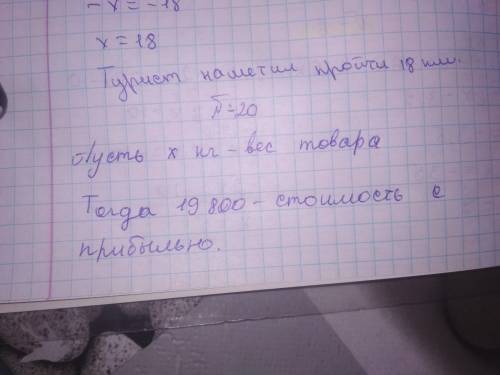 -x = -18
x = 18
Турист наметил пройти 18 км.
N=20
Пусть x кг - вес товара
Тогда 19 800 - стоимость с
прибылью.